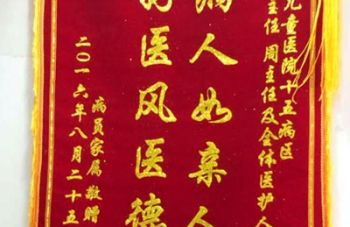 儿童医院十五病区
主任 周主任及全体医护人
病人如亲人
医风医德
病员家属 敬赠
二〇一六年八月二十五